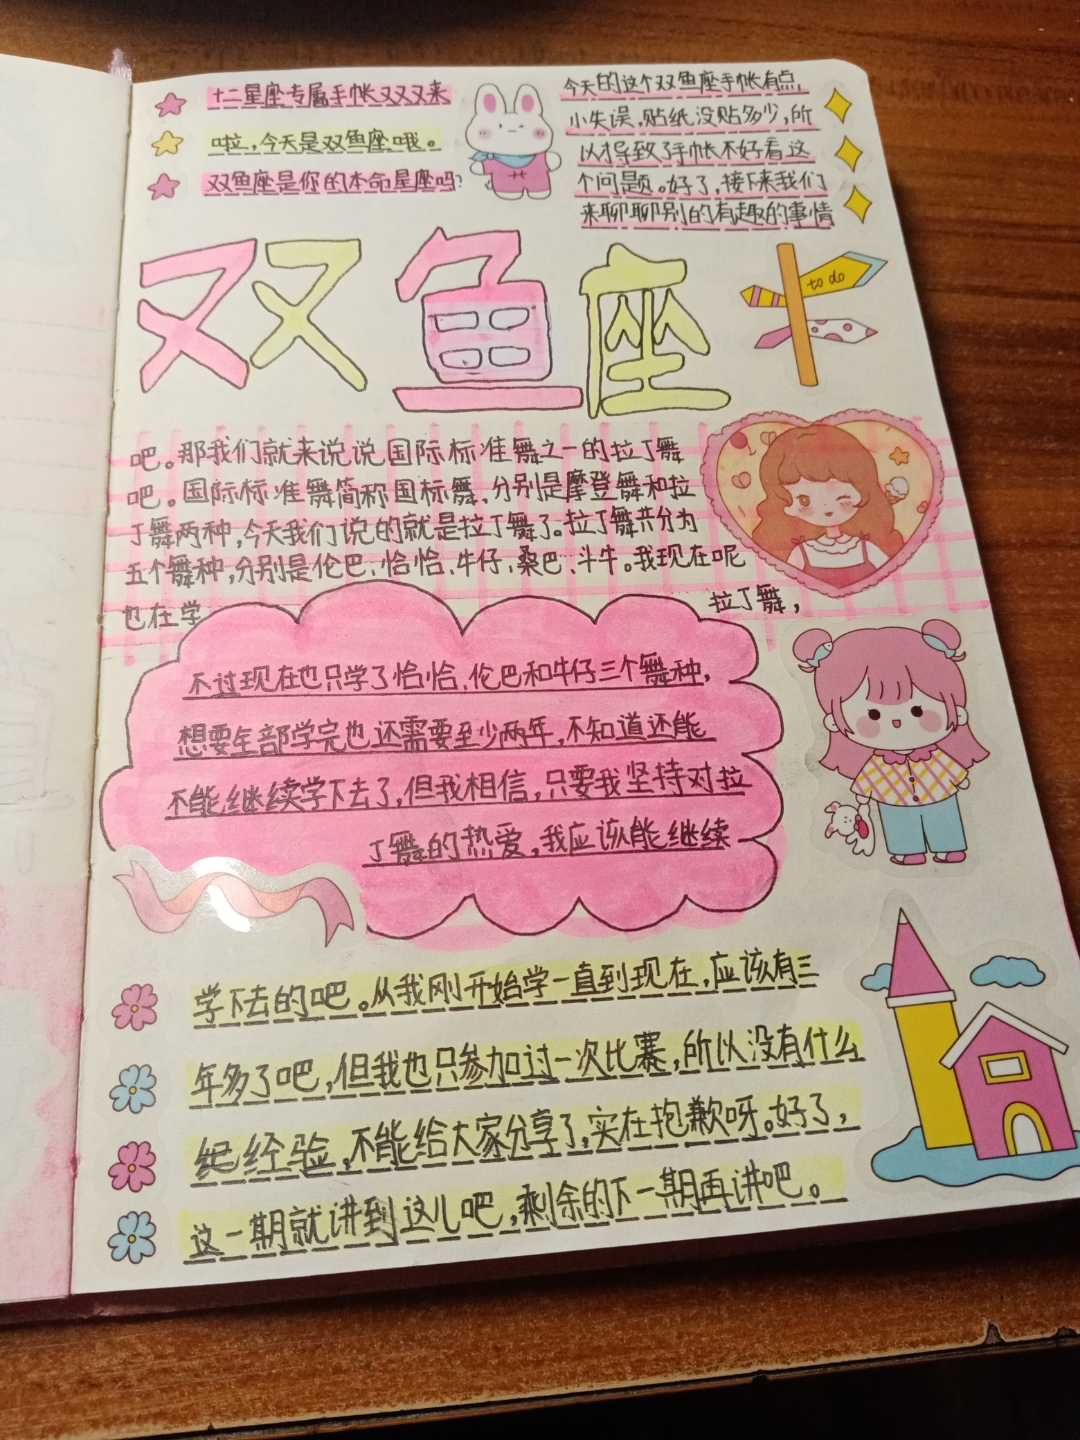 十二星座专属手帐又又又来
啦，今天是双鱼座哦。
双鱼座是你的本命星座吗？
今天的这个双鱼座手帐有点
小失误，贴纸没贴多少，所
以才导致了手帐不好看这
个问题。好了，接下来我们
来聊聊别的有趣的事情
双鱼座
to do
吧。那我们就来说说国际标准舞之一的拉丁舞
吧。国际标准舞简称国标舞，分别是摩登舞和拉
丁舞两种，今天我们说的就是拉丁舞了。拉丁舞共分为
五个舞种，分别是伦巴、恰恰、牛仔、桑巴、斗牛。我现在呢
也在学拉丁舞，
不过现在也只学了恰恰、伦巴和牛仔三个舞种，
想要全部学完也还需要至少两年，不知道还能
不能继续学下去了，但我相信，只要我坚持对拉
丁舞的热爱，我应该能继续
学下去的吧。从我刚开始学一直到现在，应该有三
年多了吧，但我也只参加过一次比赛，所以没有什么
经验，不能给大家分享了，实在抱歉呀。好了，
这一期就讲到这儿吧，剩余的下一期再讲吧。